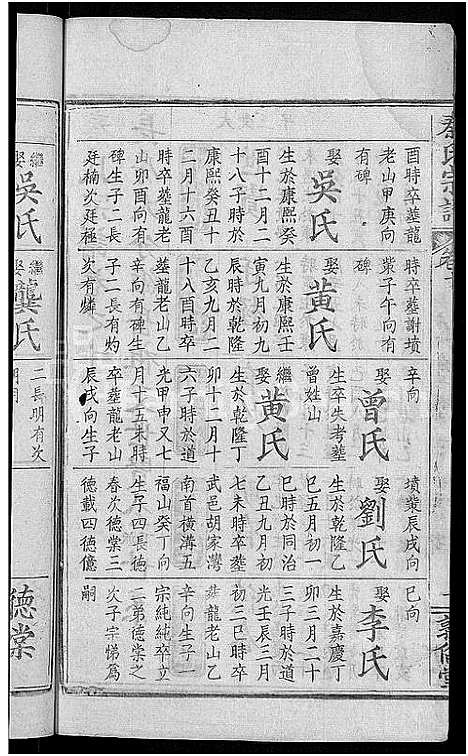 氏宗譜
酉時卒葬龍
老山甲庚向
有碑
娶吳氏
生於康熙癸
酉十二月二
十八子時於
康熙癸丑十
二月十六酉
時卒葬龍老
山卯酉向有
碑生子二長
廷楠次廷極
繼娶吳氏
時卒葬謝墳
紫子午向有
碑
娶黃氏
生於康熙壬
寅九月初九
辰時於乾隆
乙亥九月二
十八酉時卒
葬龍老山乙
辛向有碑生
子二長有灼
次有燐
繼娶龔氏
辛向
娶曾氏
生卒失考葬
曾姓山
繼娶黃氏
生於乾隆丁
卯十二月十
六子時於道
光甲申又七
月十五未時
卒葬龍老山
辰戌向生子
二長明有次
墳辰戌向
娶劉氏
生於乾隆乙
巳五月初一
巳時於同治
乙丑九月初
七未時卒葬
武邑胡家灣
南首橫溝五
福山癸丁向
生子四長德
春次德棠三
德載四德億
巳向
娶李氏
生於嘉慶丁
卯三月二十
三子時於道
光壬辰三月
初三巳時卒
葬龍老山乙
辛向生子一
宗純純卒立
二弟德棠之
次子宗悌為
嗣
德棠